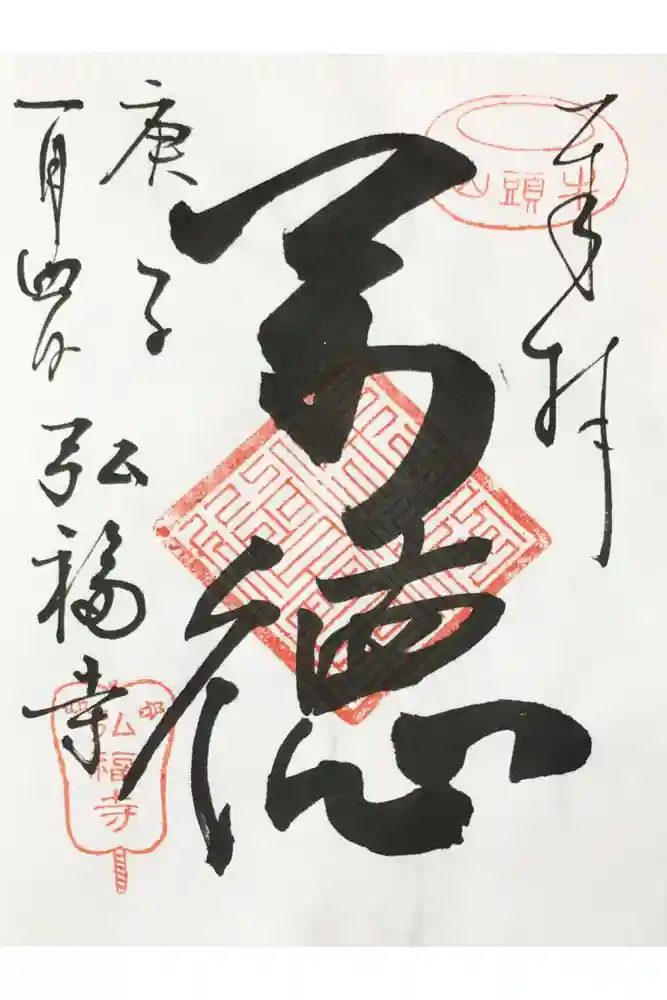 奉拝
牛頭山
萬德
庚子
一月四日
弘福寺
弘福寺